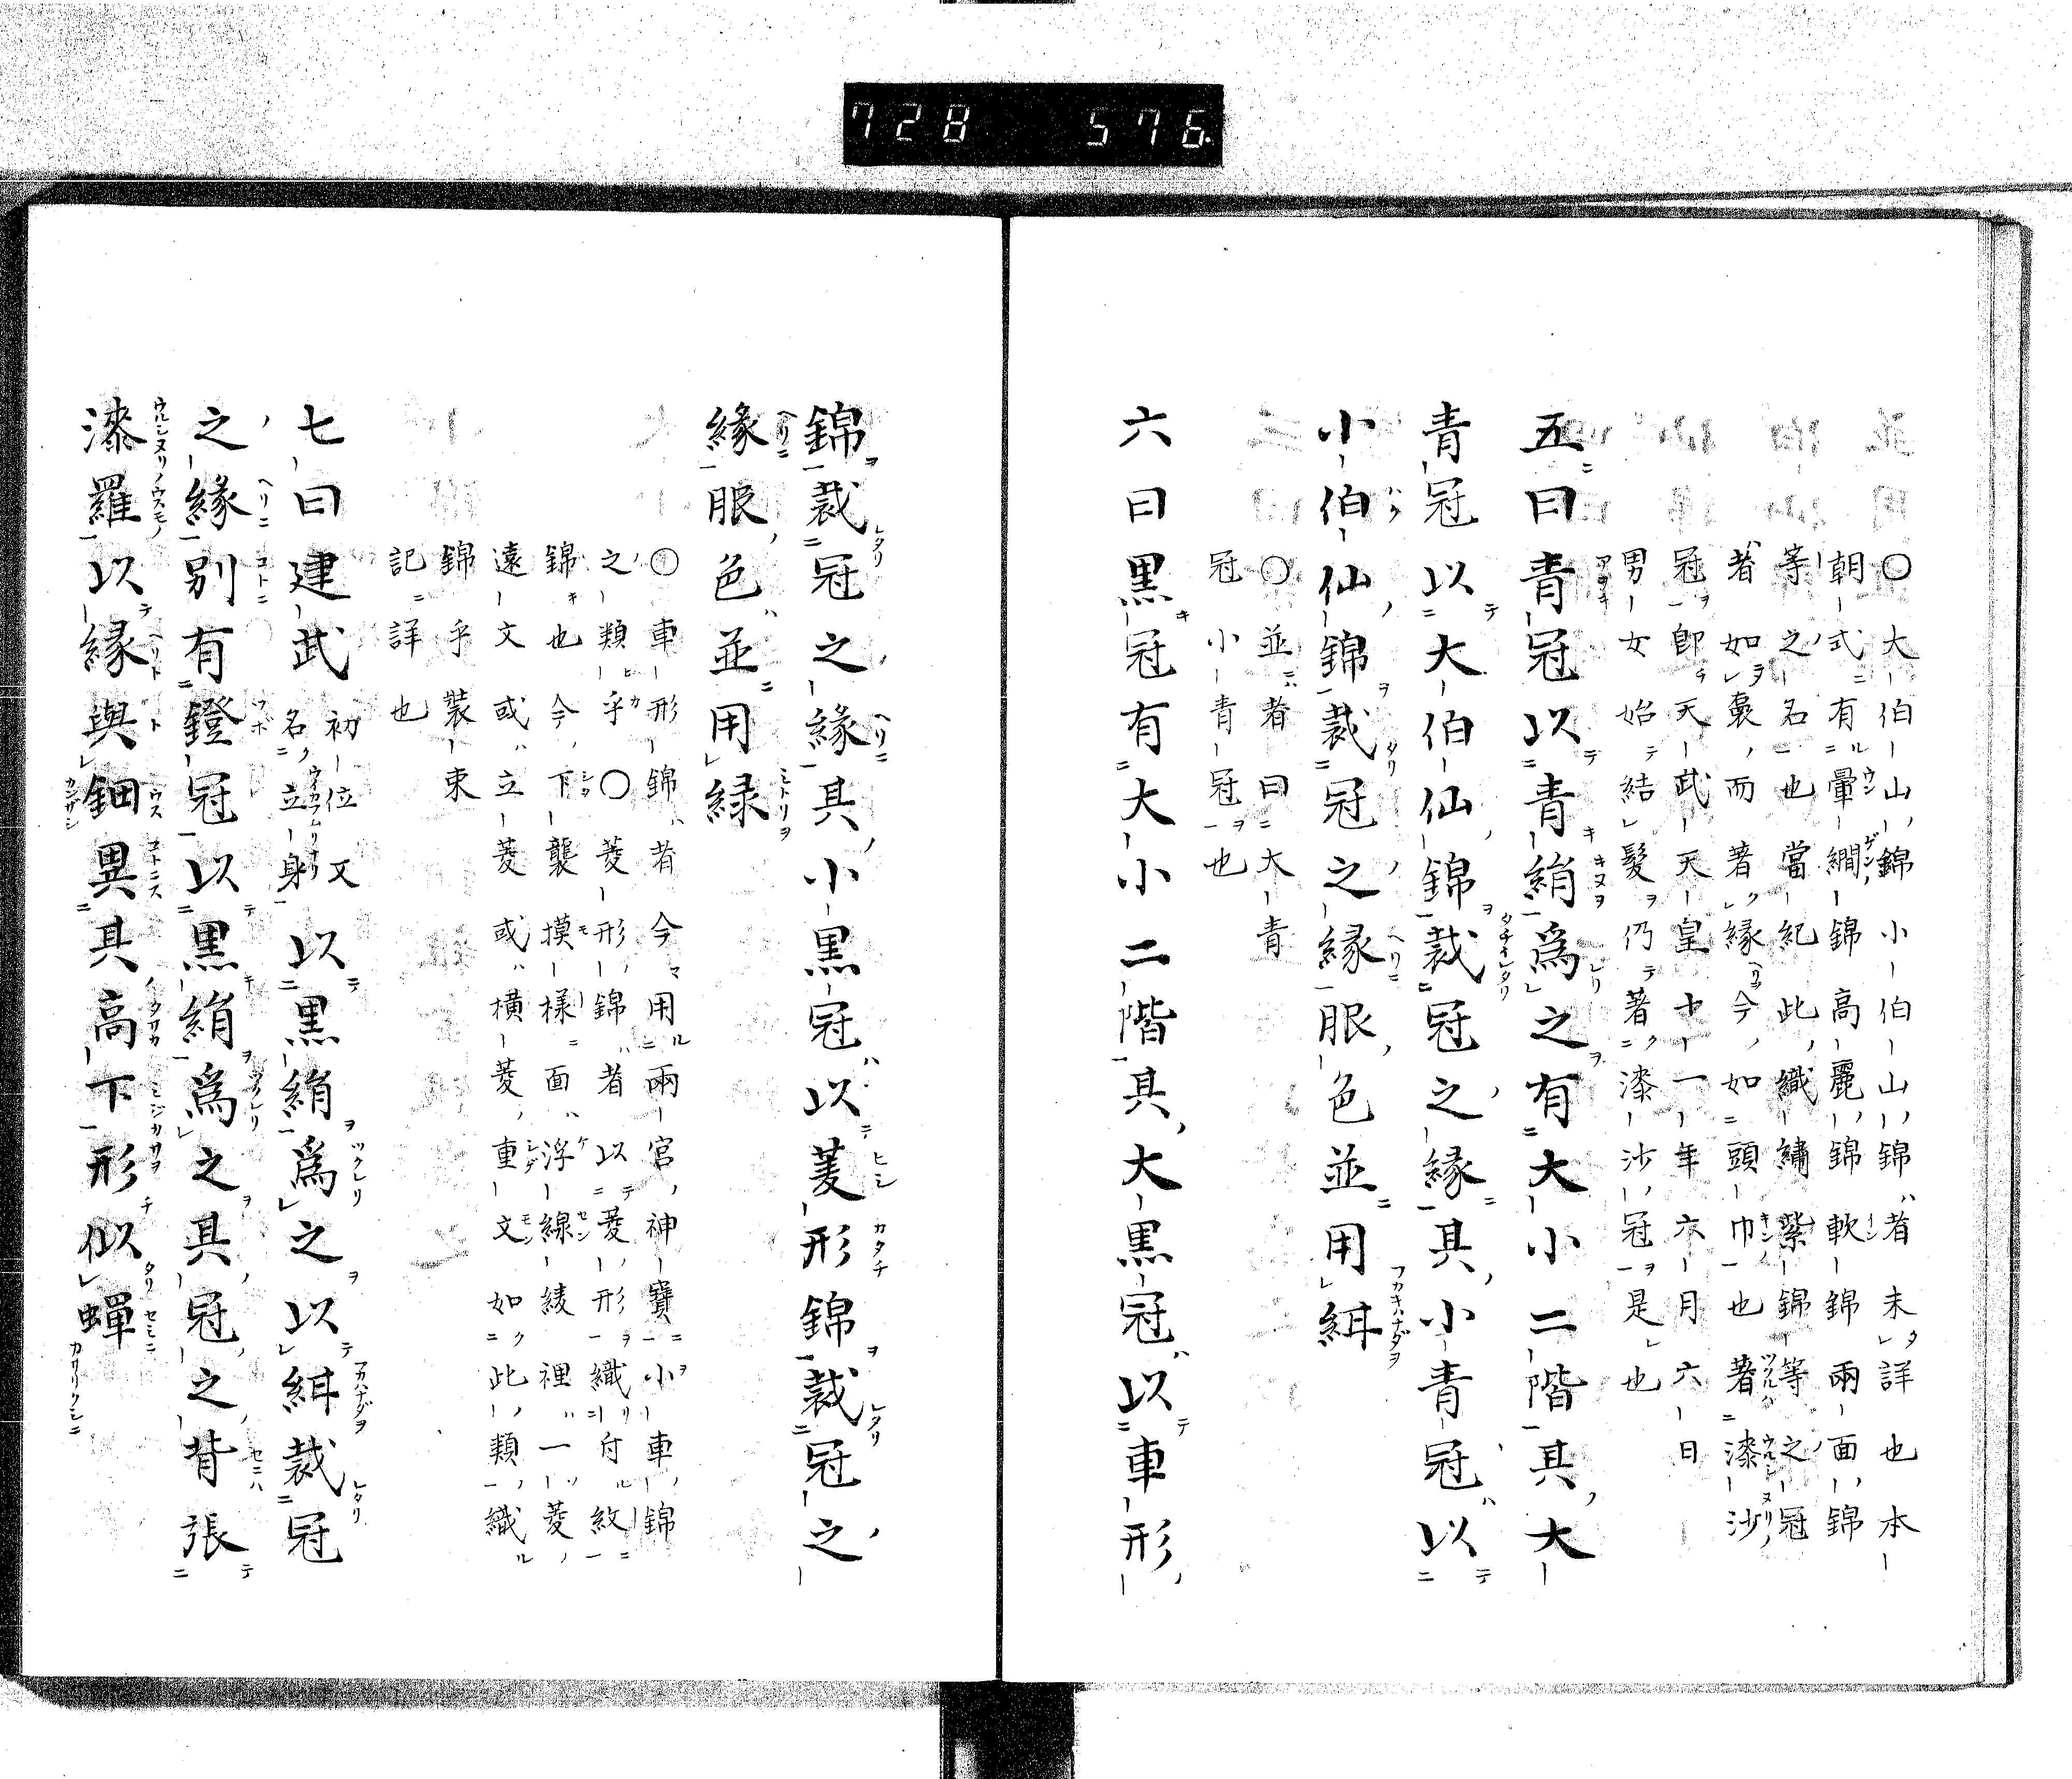 728 576
○大伯山錦小伯山錦者未詳也本
朝式有暈繝錦高麗錦軟錦兩面錦
等之名也當紀此織繡紫錦等之冠
者如嚢而著縁今如頭巾也著漆沙
冠即天武天皇十一年六月六日
男女始結髮仍著漆沙冠是也
五曰青冠以青絹爲之有大小二階其大
青冠以大伯仙錦裁冠之緣其小青冠以
小伯仙錦裁冠之緣服色並用紺
○並者曰大青
冠小青冠也
六曰黒冠有大小二階其大黒冠以車形
錦裁冠之緣其小黒冠以菱形錦裁冠之
緣服色並用緑
○車形錦者今用兩宮神寶小車錦
之類乎○菱形錦者以菱形織付紋
錦也今下襲摸様面浮線綾裡一菱
遠文或立菱或横菱重文如此類織
錦乎装束
記詳也
七曰建武初位又名立身以黒絹爲之以紺裁冠
之緣別有鐙冠以黒絹爲之其冠之背張
漆羅以緣與鈿異其高下形似蟬